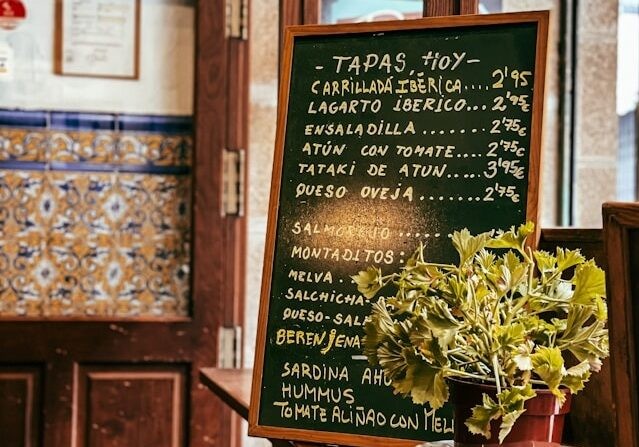 - TAPAS, HOY -
CARRILLADA IBÉRICA.... 2'95
LAGARTO IBERICO... 2'95€
ENSALADILLA ....... 2'75€
ATÚN CON TOMATE.... 2'75€
TATAKI DE ATUN..... 3'95€
QUESO OVEJA ....... 2'75€
SALMOREJO .....
MONTADITOS:
MELVA
SALCHICHA-
QUESO-SALA
BERENJENA
SARDINA AHU
HUMMUS
TOMATE ALIÑAO CON MEL